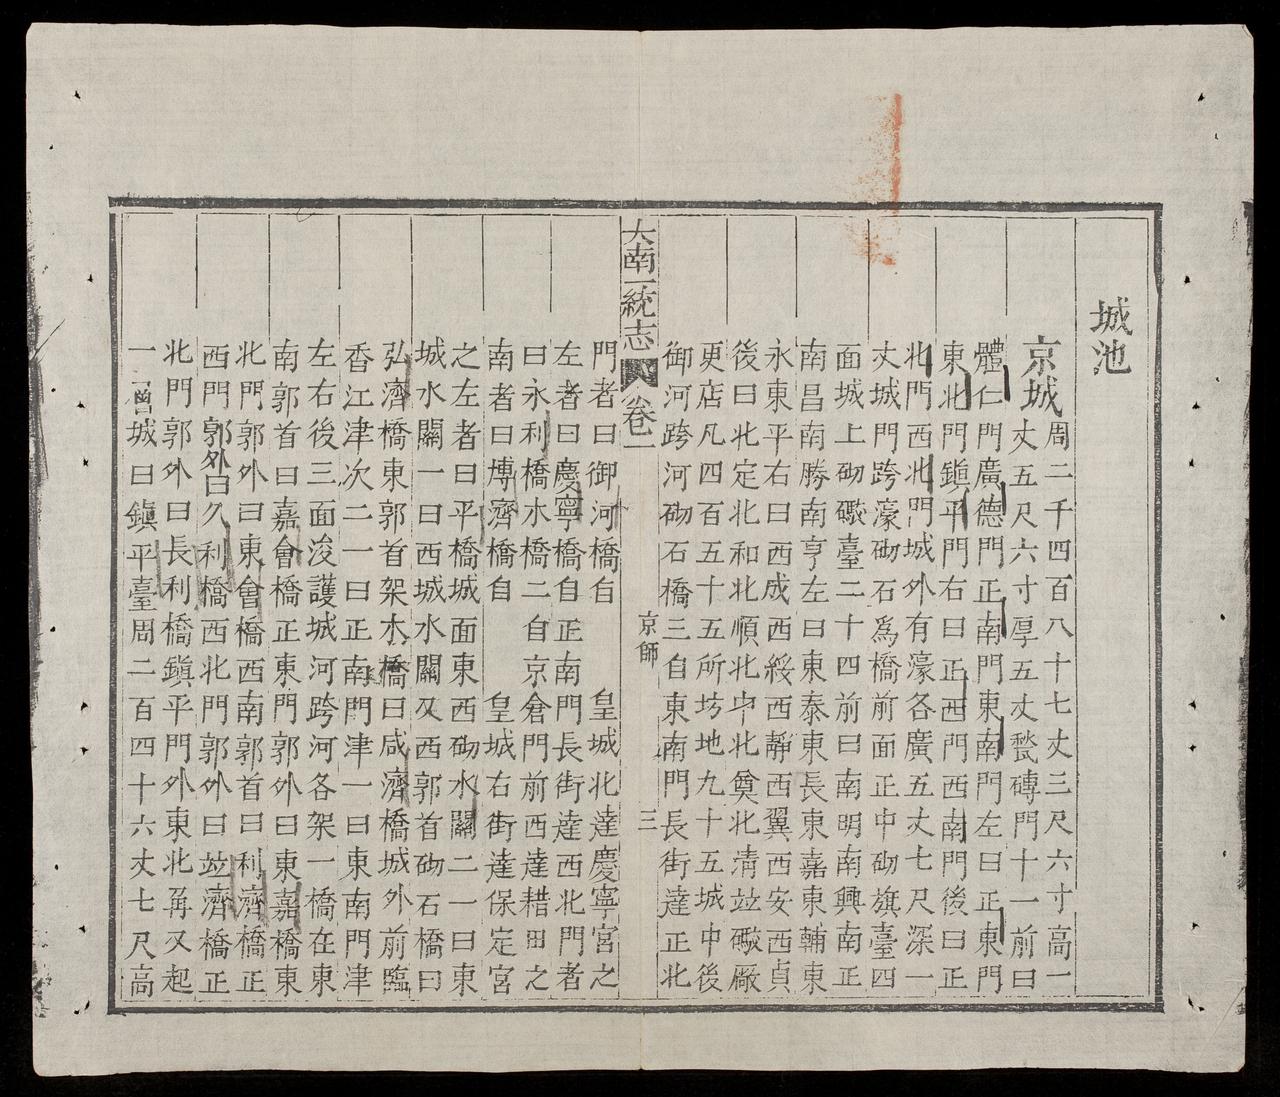 城池
京城
周二千四百八十七丈三尺六寸高一
丈五尺六寸厚五丈甃磚門十一前曰
體仁門廣德門正南門東南門左曰正東門
東北門鎮平門右曰正西門西南門後曰正
北門西北門城外有濠各廣五丈七尺深一
丈城門跨濠砌石爲橋前面正中砌旗臺四
面城上砌礮臺二十四前曰南明南興南正
南昌南勝南亨左曰東泰東長東嘉東輔東
永東平右曰西成西綏西靜西翼西安西貞
後曰北定北和北順北中北奠北清竝礮厰
更店凡四百五十五所坊地九十五城中後
御河跨河砌石橋三自東南門長街達正北
大南一統志 卷一 京師 三
門者曰御河橋自 皇城北達慶寧宮之
左者曰慶寧橋自正南門長街達西北門者
曰永利橋水橋二自京倉門前西達耤田之
南者曰博濟橋自 皇城右街達保定宮
之左者曰平橋城面東西砌水關二一曰東
城水關一曰西城水關又西郭首砌石橋曰
弘濟橋東郭首架木橋曰咸濟橋城外前臨
香江津次二一曰正南門津一曰東南門津
左右後三面浚護城河跨河各架一橋在東
南郭首曰嘉會橋正東門郭外曰東嘉橋東
北門郭外曰東會橋西南郭首曰利濟橋正
西門郭外曰久利橋西北門郭外曰竝濟橋正
北門郭外曰長利橋鎮平門外東北再又起
一層城曰鎮平臺周二百四十六丈七尺高